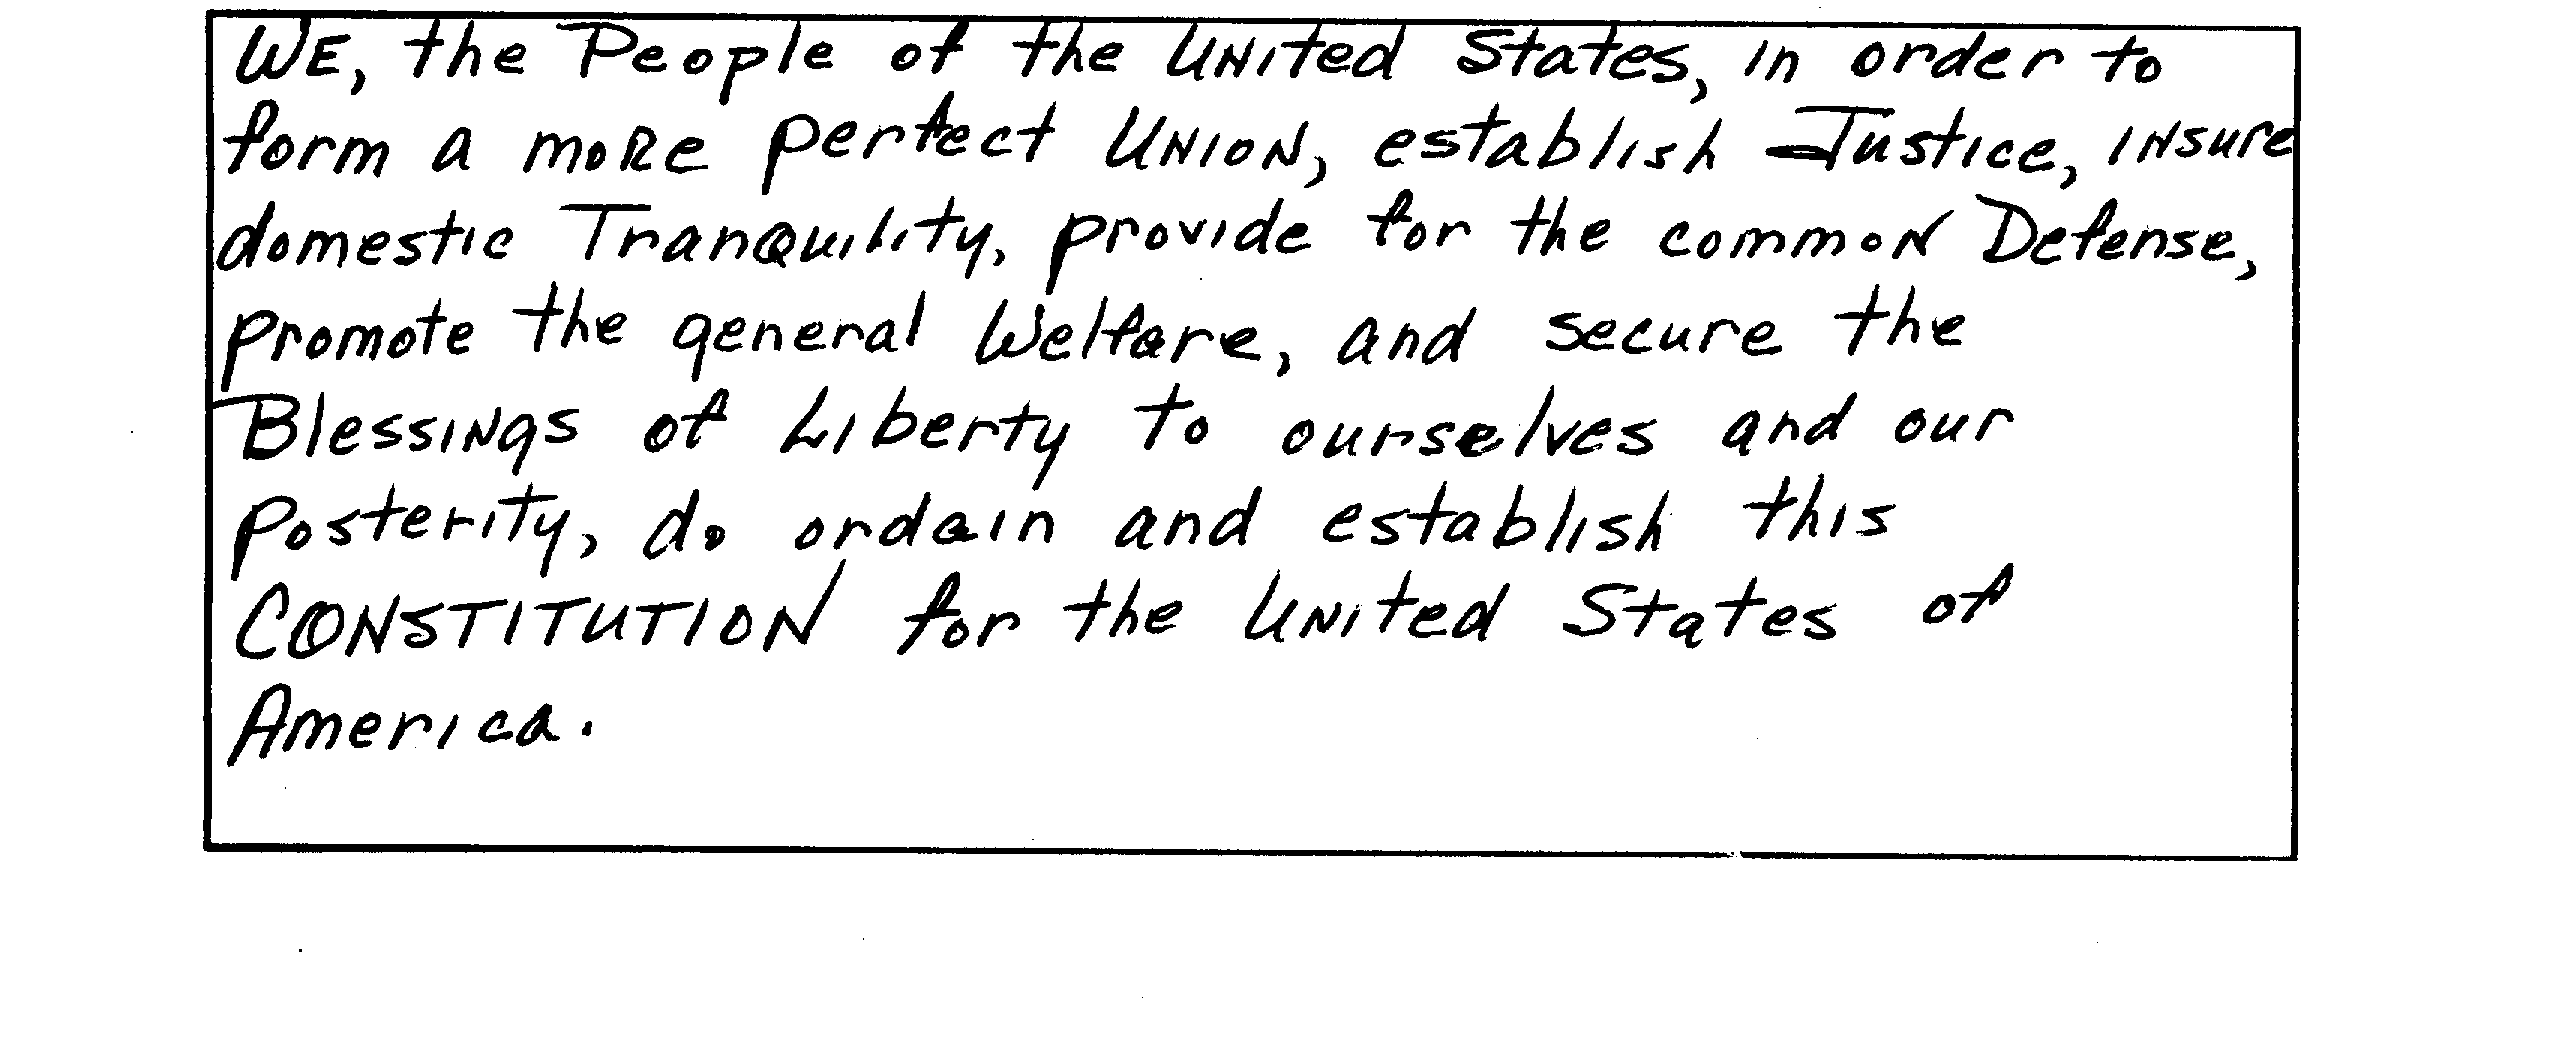 WE, the People of the United States, in order to
form a more perfect Union, establish Justice, insure
domestic Tranquility, provide for the common Defense,
promote the general Welfare, and secure the
Blessings of Liberty to ourselves and our
Posterity, do ordain and establish this
CONSTITUTION for the United States of
America.